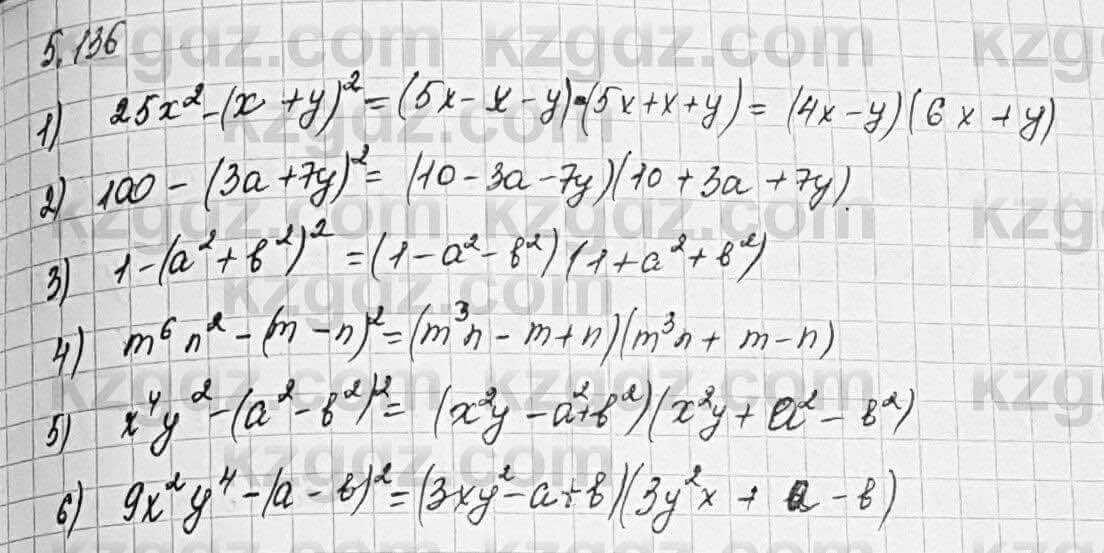 5.136
1) 25x² - (x + y)² = (5x - x - y)·(5x + x + y) = (4x - y)(6x + y)
2) 100 - (3a + 7y)² = (10 - 3a - 7y)(10 + 3a + 7y).
3) 1 - (a² + b²)² = (1 - a² - b²)(1 + a² + b²)
4) m⁶n² - (m - n)² = (m³n - m + n)(m³n + m - n)
5) x⁴y² - (a² - b²)² = (x²y - a² + b²)(x²y + a² - b²)
6) 9x²y⁴ - (a - b)² = (3xy² - a + b)(3y²x + a - b)
kzgdz.com